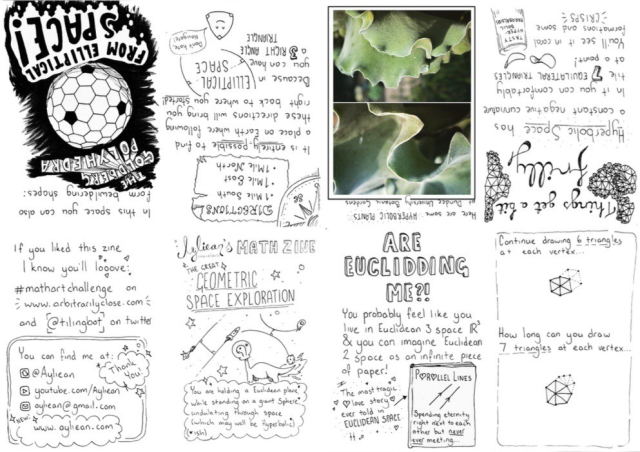 FROM ELLIPTICAL
SPACE!
THE
GOLDBERG
POLYHEDRA
In this space you can also
form bewildering shapes:
DIRECTIONS
1 Mile South
1 Mile East
1 Mile North
It is entirely possible to find
a place on Earth where following
these directions will bring you
right back to where you started!
Because in
ELLIPTICAL
SPACE
you can have
3 RIGHT ANGLE
TRIANGLE
Here are some HYPERBOLIC PLANTS
at Dundee University Botanic Gardens
Things get a bit
frilly
Hyperbolic Space has
a constant negative curvature
In it you can comfortably
tile 7 EQUILATERAL TRIANGLES
at a point!
You'll see it in coral
formations and some
CRISPS
TASTY
HYPER
If you liked this zine
I know you'll looove:
#mathartchallenge on
www.arbitrarilyclose.com
and @tilingbot on twitter
You can find me at:
Thank
You!
@Ayliean
youtube.com/Ayliean
ayliean@gmail.com
NEW
www.ayliean.com
Ayliean's MATH ZINE
THE GREAT
GEOMETRIC
SPACE EXPLORATION
You are holding a Euclidean plane
while standing on a giant Sphere*
undulating through space
(which may well be Hyperbolic)
*ish
ARE
EUCLIDDING
ME?!
You probably feel like you
live in Euclidean 3 space ℝ³
& you can imagine Euclidean
2 space as an infinite piece
of paper!
The most tragic
love story
ever told in
EUCLIDEAN SPACE
PARALLEL LINES
Spending eternity
right next to each
other but never
ever meeting...
Continue drawing 6 triangles
at each vertex...
How long can you draw
7 triangles at each vertex...